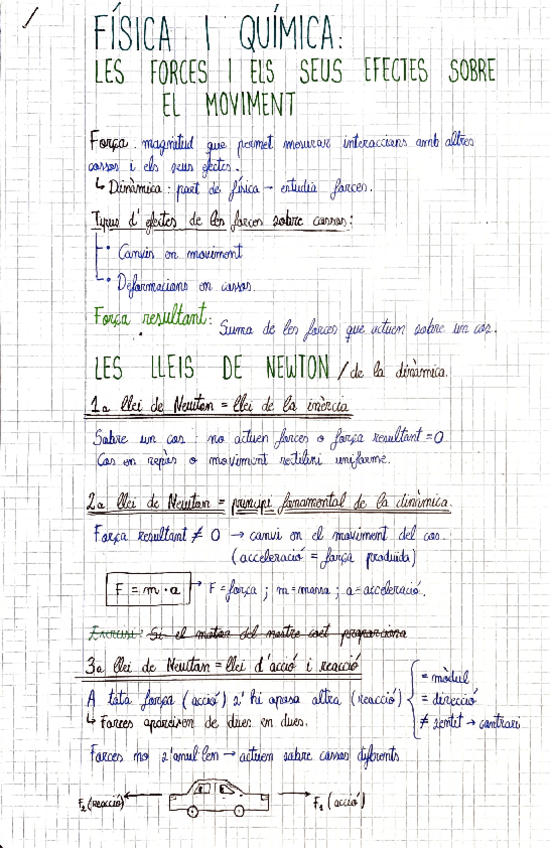 FÍSICA I QUÍMICA:
LES FORCES I ELS SEUS EFECTES SOBRE
EL MOVIMENT
Força: magnitud que permet mesurar interaccions amb altres
cossos i els seus efectes.
↳ Dinàmica: part de física → estudia forces.
Tipus d'efectes de les forces sobre cossos:
• Canvis en moviment
• Deformacions en cossos.
Força resultant: Suma de les forces que actuen sobre un cos.
LES LLEIS DE NEWTON / de la dinàmica.
1a llei de Newton = llei de la inèrcia
Sobre un cos: no actuen forces o força resultant = 0
Cos en repòs o moviment rectilini uniforme.
2a llei de Newton = principi fonamental de la dinàmica.
Força resultant ≠ 0 → canvi en el moviment del cos.
(acceleració = força produida)
F = m · a → F = força ; m = massa ; a = acceleració.
Exercici: Si el motor del nostre coet proporciona
3a llei de Newton = llei d'acció i reacció
A tota força (acció) s'hi oposa altra (reacció)
= mòdul
= direcció
≠ sentit → contrari
↳ Forces apareixen de dues en dues.
Forces no s'anul·len → actuen sobre cossos diferents
F2 (reacció)
F1 (acció)